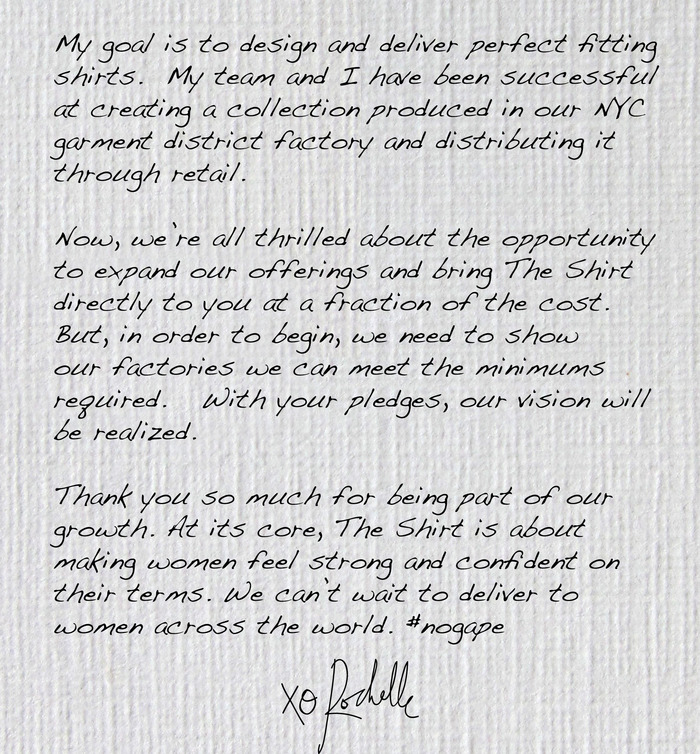 My goal is to design and deliver perfect fitting
shirts. My team and I have been successful
at creating a collection produced in our NYC
garment district factory and distributing it
through retail.
Now, we're all thrilled about the opportunity
to expand our offerings and bring The Shirt
directly to you at a fraction of the cost.
But, in order to begin, we need to show
our factories we can meet the minimums
required. With your pledges, our vision will
be realized.
Thank you so much for being part of our
growth. At its core, The Shirt is about
making women feel strong and confident on
their terms. We can't wait to deliver to
women across the world. #nogape
xo Rochelle